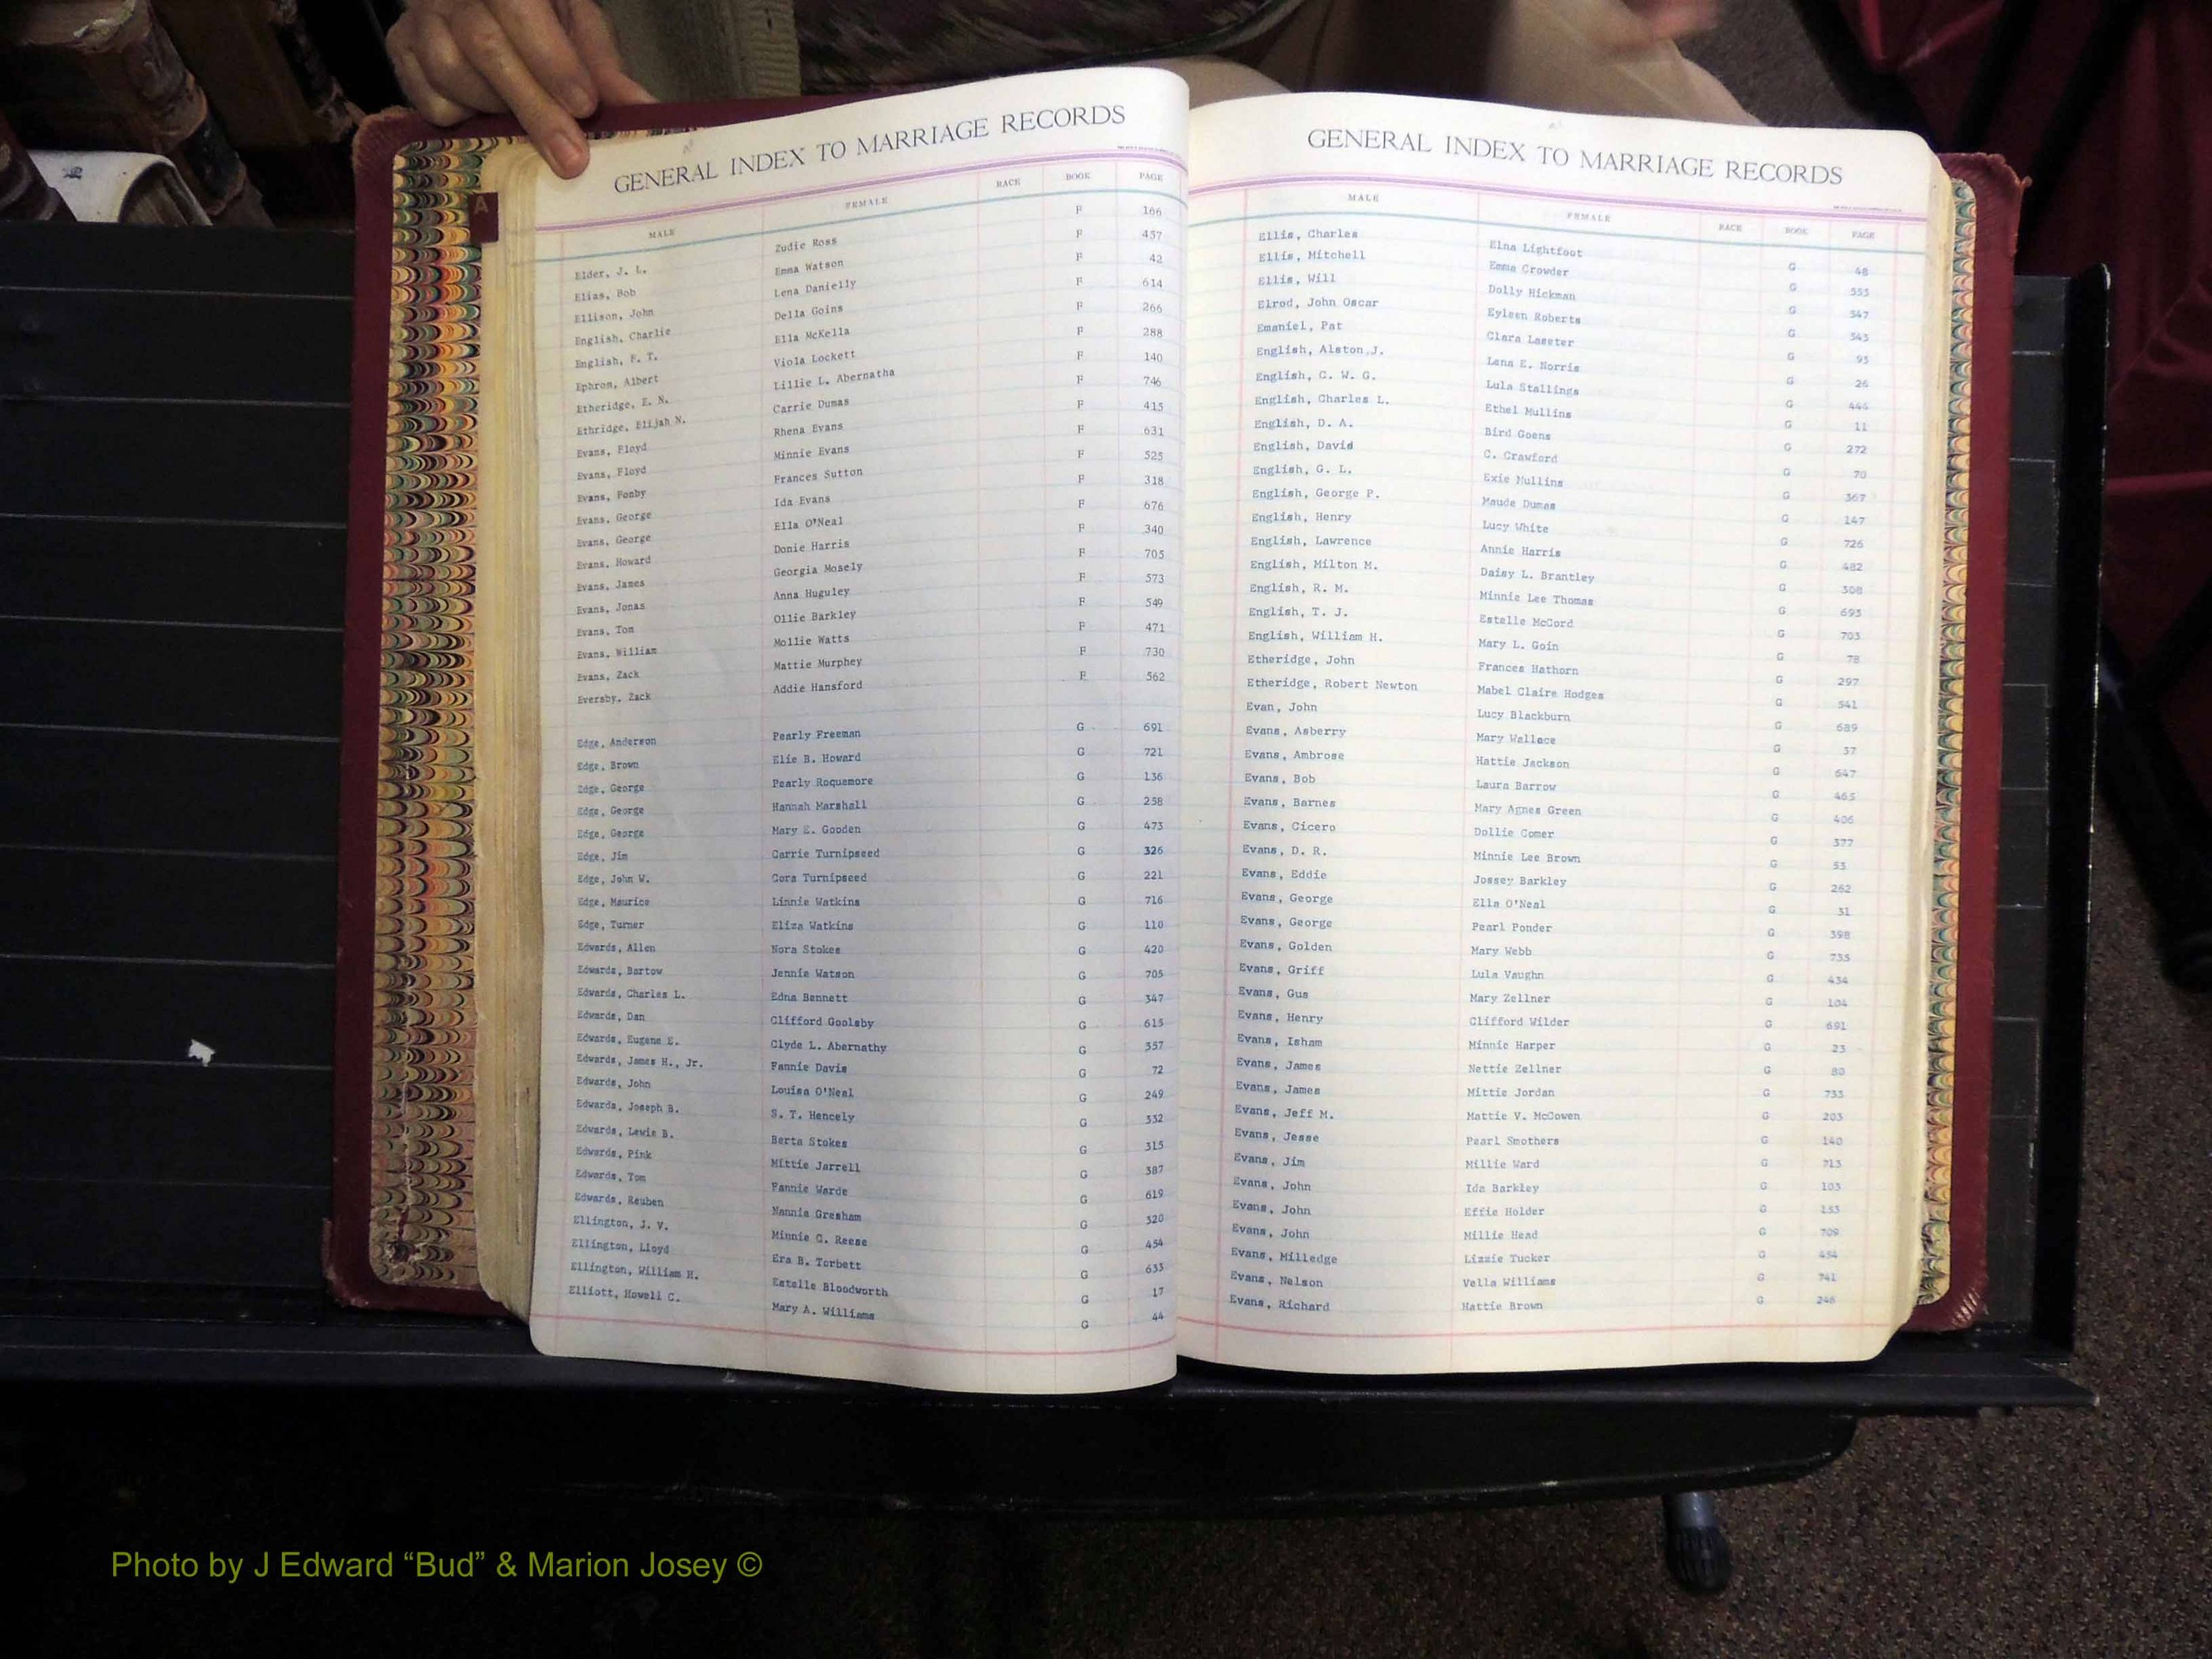 GENERAL INDEX TO MARRIAGE RECORDS
MALE FEMALE RACE BOOK PAGE
Elder, J. L. Zudie Ross F 166
Elias, Bob Emma Watson F 457
Ellison, John Lena Danielly F 42
English, Charlie Della Goins F 614
English, F. T. Ella McKella F 266
Ephrom, Albert Viola Lockett F 288
Etheridge, E. N. Lillie L. Abernatha F 140
Ethridge, Elijah N. Carrie Dumas F 746
Evans, Floyd Rhena Evans F 415
Evans, Floyd Minnie Evans F 631
Evans, Fonby Frances Sutton F 525
Evans, George Ida Evans F 318
Evans, George Ella O'Neal F 676
Evans, Howard Donie Harris F 340
Evans, James Georgia Mosely F 705
Evans, Jonas Anna Huguley F 573
Evans, Tom Ollie Barkley F 549
Evans, William Mollie Watts F 471
Evans, Zack Mattie Murphey F 730
Eversby, Zack Addie Hansford F 562
Edge, Anderson Pearly Freeman G 691
Edge, Brown Elie B. Howard G 721
Edge, George Pearly Roquemore G 136
Edge, George Hannah Marshall G 258
Edge, George Mary E. Gooden G 473
Edge, Jim Carrie Turnipseed G 326
Edge, John W. Cora Turnipseed G 221
Edge, Maurice Linnie Watkins G 716
Edge, Turner Eliza Watkins G 110
Edwards, Allen Nora Stokes G 420
Edwards, Bartow Jennie Watson G 705
Edwards, Charles L. Edna Bennett G 347
Edwards, Dan Clifford Goolsby G 615
Edwards, Eugene E. Clyde L. Abernathy G 357
Edwards, James H., Jr. Fannie Davis G 72
Edwards, John Louisa O'Neal G 249
Edwards, Joseph B. S. T. Hencely G 332
Edwards, Lewis B. Berta Stokes G 315
Edwards, Pink Mittie Jarrell G 387
Edwards, Tom Fannie Warde G 619
Edwards, Reuben Nannie Gresham G 320
Ellington, J. V. Minnie C. Reese G 454
Ellington, Lloyd Era B. Torbett G 633
Ellington, William H. Estelle Bloodworth G 17
Elliott, Howell C. Mary A. Williams G 44
GENERAL INDEX TO MARRIAGE RECORDS
MALE FEMALE RACE BOOK PAGE
Ellis, Charles Elna Lightfoot G 48
Ellis, Mitchell Emma Crowder G 555
Ellis, Will Dolly Hickman G 547
Elrod, John Oscar Eyleen Roberts G 343
Emaniel, Pat Clara Lasseter G 93
English, Alston J. Lena E. Norris G 26
English, C. W. G. Lula Stallings G 446
English, Charles L. Ethel Mullins G 11
English, D. A. Bird Goens G 272
English, David C. Crawford G 70
English, G. L. Exie Mullins G 367
English, George P. Maude Dumas G 147
English, Henry Lucy White G 726
English, Lawrence Annie Harris G 482
English, Milton M. Daisy L. Brantley G 308
English, R. M. Minnie Lee Thomas G 693
English, T. J. Estelle McCord G 703
English, William H. Mary L. Goin G 78
Etheridge, John Frances Hathorn G 297
Etheridge, Robert Newton Mabel Claire Hodges G 541
Evan, John Lucy Blackburn G 689
Evans, Asberry Mary Wallace G 37
Evans, Ambrose Hattie Jackson G 647
Evans, Bob Laura Barrow G 465
Evans, Barnes Mary Agnes Green G 406
Evans, Cicero Dollie Comer G 377
Evans, D. R. Minnie Lee Brown G 53
Evans, Eddie Jossey Barkley G 262
Evans, George Ella O'Neal G 31
Evans, George Pearl Ponder G 398
Evans, Golden Mary Webb G 735
Evans, Griff Lula Vaughn G 434
Evans, Gus Mary Zellner G 104
Evans, Henry Clifford Wilder G 691
Evans, Isham Minnie Harper G 23
Evans, James Nettie Zellner G 80
Evans, James Mittie Jordan G 733
Evans, Jeff M. Mattie V. McCowen G 203
Evans, Jesse Pearl Smothers G 140
Evans, Jim Millie Ward G 713
Evans, John Ida Barkley G 103
Evans, John Effie Holder G 153
Evans, John Millie Head G 709
Evans, Milledge Lizzie Tucker G 454
Evans, Nelson Vella Williams G 741
Evans, Richard Hattie Brown G 246
A
Photo by J Edward “Bud” & Marion Josey ©